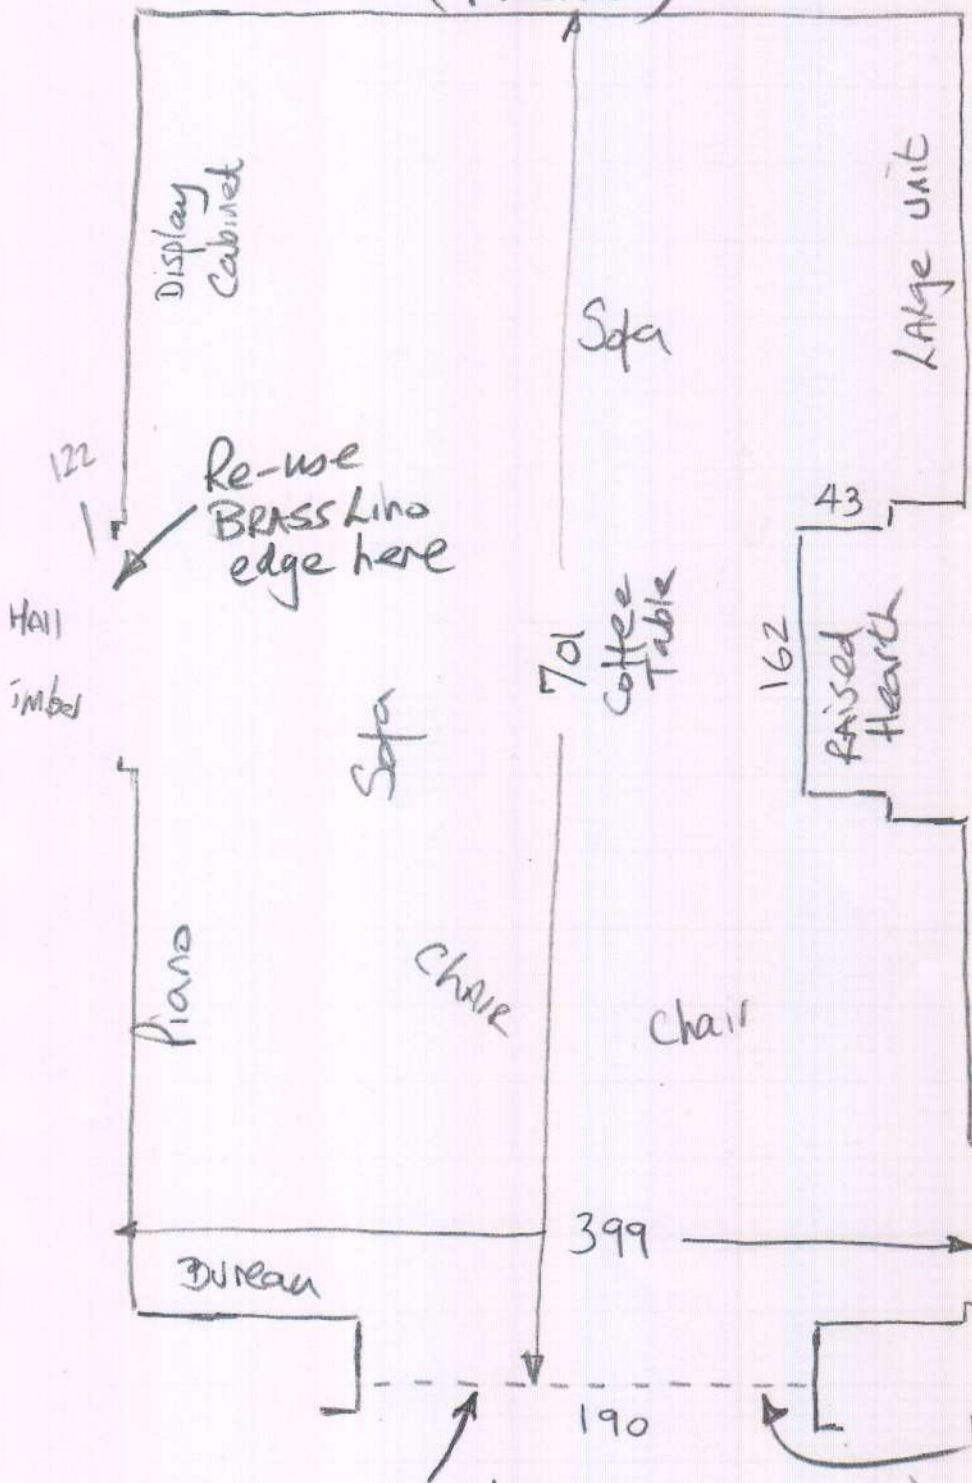 Display
Cabinet
LARge unit
Sofa
122
Re-use
BRASS Lino
edge here
43
HAll
imber
701
Coffee
Table
162
RAised
Hearth
Sofa
Piano
ChAIR
Chair
399
Bureau
190